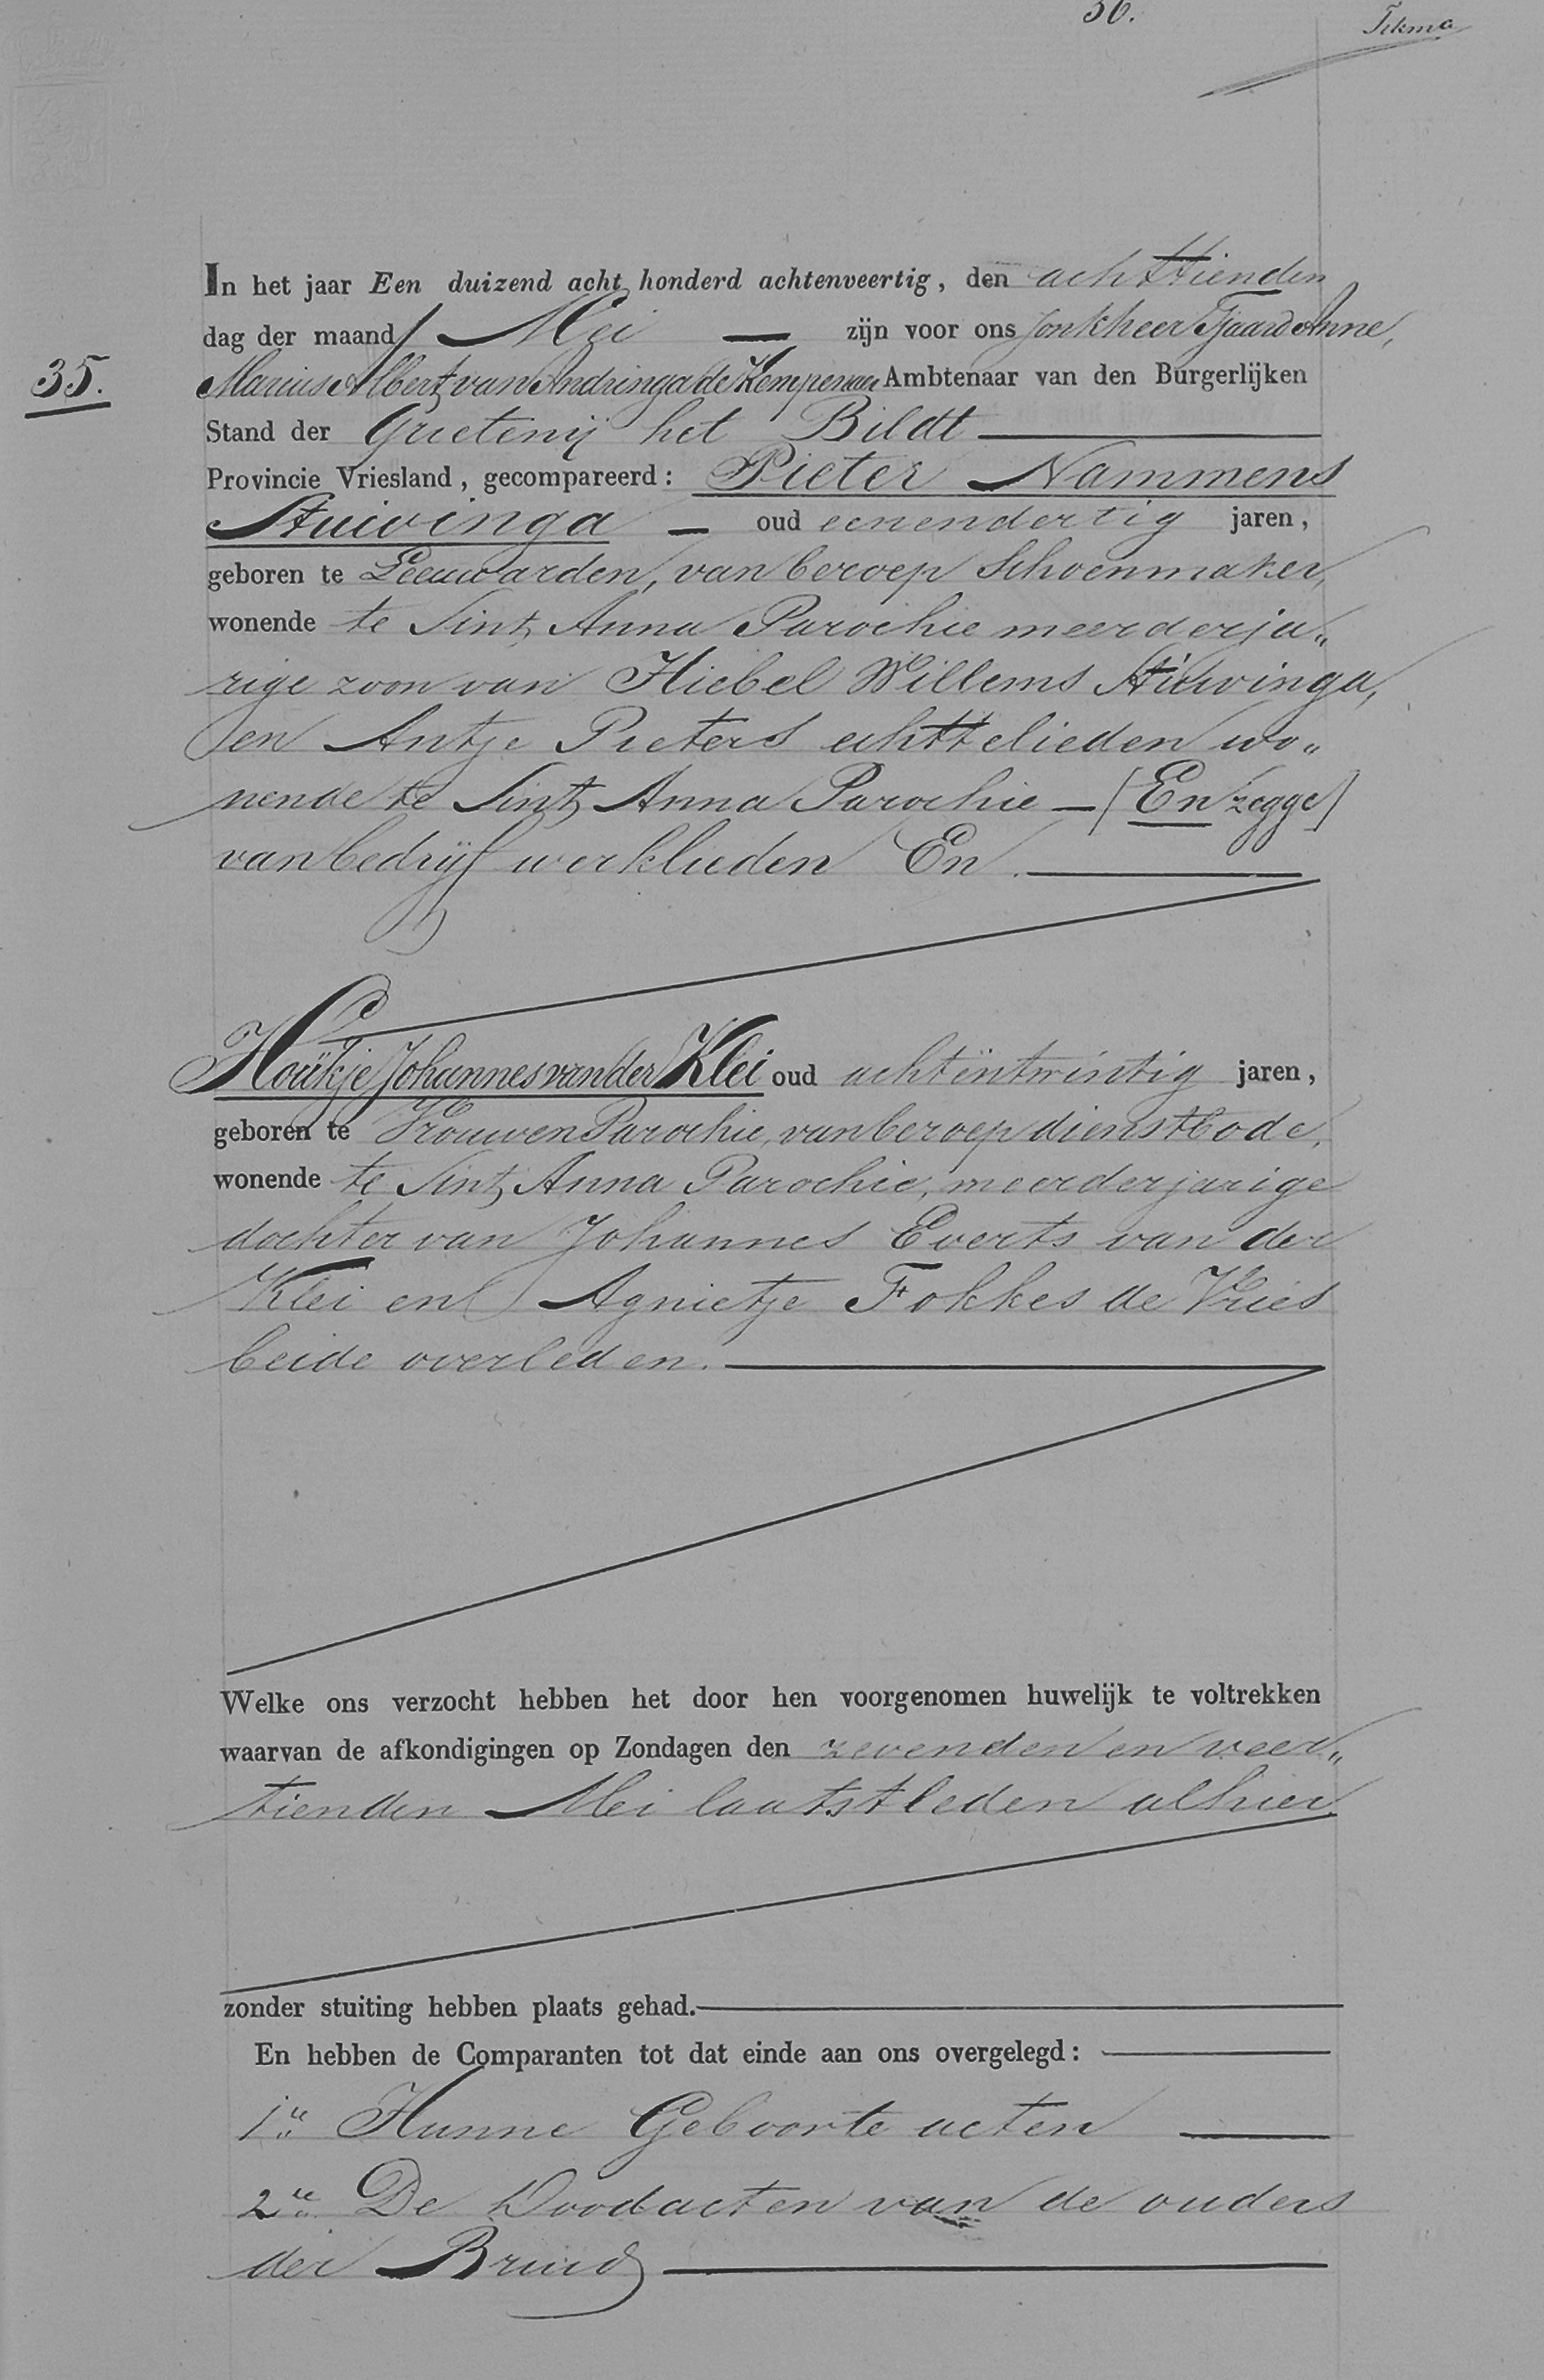 36.
In het jaar Een duizend acht honderd achtenveertig, den achttienden
dag der maand Mei zijn voor ons Jonkheer Tjaard Anne,
35. Marius Albert van Andringa de Kempenaer Ambtenaar van den Burgerlijken
Stand der Grietenij het Bildt
Provincie Vriesland, gecompareerd: Pieter Nammens
Stuivinga oud eenendertig jaren,
geboren te Leeuwarden, van beroep Schoenmaker,
wonende te Sint Anna Parochie meerderja„
rige zoon van Hiebel Willems Stuivinga,
en Antje Pieters echttelieden wo„
nende te Sint Anna Parochie — (En zegge)
van bedrijf werklieden En
Houkje Johannes van der Klei oud achtëntwintig jaren,
geboren te Vrouwen Parochie, van beroep dienstbode,
wonende te Sint Anna Parochie, meerderjarige
dochter van Johannes Everts van der
Klei en Agnietje Fokkes de Vries
beide overleden.
Welke ons verzocht hebben het door hen voorgenomen huwelijk te voltrekken
waarvan de afkondigingen op Zondagen den zevenden en veer„
tienden Mei laatstleden alhier
zonder stuiting hebben plaats gehad.
En hebben de Comparanten tot dat einde aan ons overgelegd:
1e. Hunne Geboorte acten
2e. De Doodacten van de ouders
der Bruid